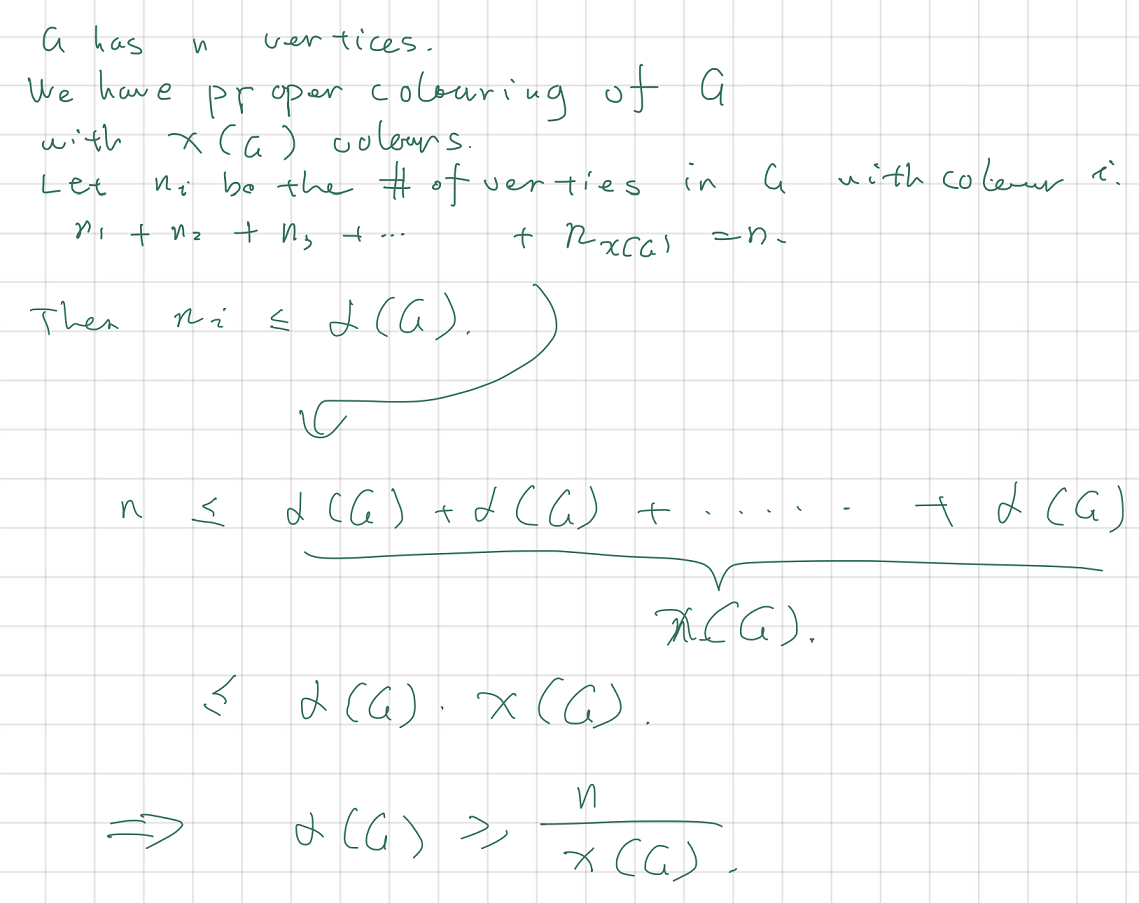 G has n vertices.
We have proper colouring of G
with χ(G) colours.
Let nᵢ be the # of verties in G with colour i.
n₁ + n₂ + n₃ + ... + n_χ(G) = n.
Then nᵢ ≤ α(G).
n ≤ α(G) + α(G) + ..... + α(G)
χ(G).
≤ α(G) · χ(G).
⇒ α(G) ≥ n / χ(G).